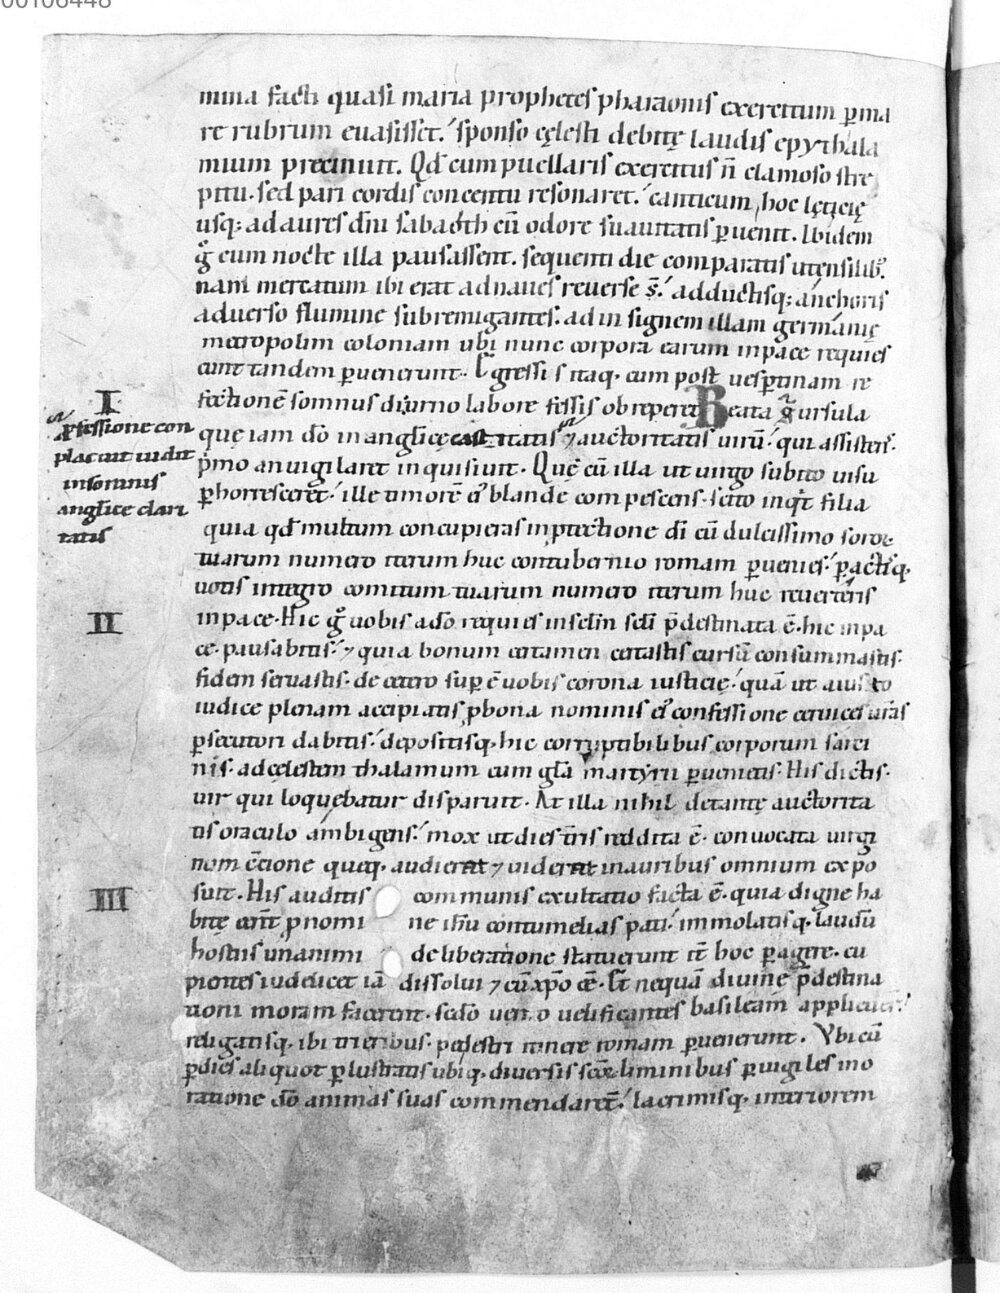 00106448
mina facti quasi maria prophetes pharaonis exercitum ꝑma
re rubrum euasisset. sponso cęlesti debitę laudis epythala
mium precinuit. Qđ cum puellaris exercitus n̄ clamoso stre
pitu. sed pari cordis concentu resonaret. canticum hoc lęticię
usq; ad aures dn̄i sabaoth cū odore suauitatis ꝑuenit. Ibidem
g̊ cum nocte illa pausassent. sequenti die comparatis utensilib;
nam mercatum ibi erat ad naues reuerse s̄. adductisq; anchoris
aduerso flumine subremigantes. ad insignem illam germanię
metropolim coloniam ubi nunc corpora earum inpace requies
cunt tandem ꝑuenerunt. Egressis itaq. cum post uesꝑtinam re
fectionē somnus diurno labore fessis obreperet Beata g̊ ursula
I
ꝓfessione con
placuit uidit
insomnis
anglice clari
tatis
quę iam dō in anglicę castitatis ⁊ auctoritatis uirū. qui assisteř.
p̄mo an uigilaret inquisiuit. Quę cū illa ut uirgo subito uisu
ꝑhorresceret. ille timorē ei blande compescens. scito inqt filia
quia qđ multum concupieras inꝓtectione dī cū dulcissimo soror
tuarum numero iterum huc contubernio romam ꝑuenies. ꝑactisq.
uotis integro comitum tuarum numero iterum huc reuerteris
II
inpace. Hic g̊ uobis a dō requies inselm̄ sclī p̄destinata ē. hic inpa
ce. pausabitis. ⁊ quia bonum certamen certastis cursū consummastis.
fidem seruastis. de cetero suꝑē uobis corona iusticię. quā ut a iusto
iudice plenam accipiatis ꝓ bona nominis ei confessione ceruices ur̄as
ꝑsecutori dabitis. depositisq. hic corruptibilibus corporum sarci
nis. ad celestem thalamum cum gl̄a martyrii ꝑuenietis. His dictis.
uir qui loquebatur disparuit. At illa nihil de tantę auctorita
tis oraculo ambigens. mox ut dies tr̄is reddita ē. conuocata uirgi
num c̄cione queq. audierat ⁊ uiderat in auribus omnium expo
III
suit. His auditis communis exultatio facta ē. quia digne ha
bitę eränt ꝓ nomine ih̄u contumelias pati. immolatisq. laudū
hostiis unanimi deliberatione statuerunt it̄ hoc ꝑagere. cu
pientes uidelicet iā dissolui ⁊ cū xp̄o ēē. Et nequā diuinę p̄destina
tioni moram facerent. scd̄o uento uelificantes basileam applicuer̄.
religatisq. ibi trieribus. pedestri itinere romam ꝑuenerunt. Vbi cū
ꝑ dies aliquot ꝑlustratis ubiq. diuersis sc̄oꝝ liminibus ꝑuigiles ino
ratione dō animas suas commendarent. lacrimisq. interiorem